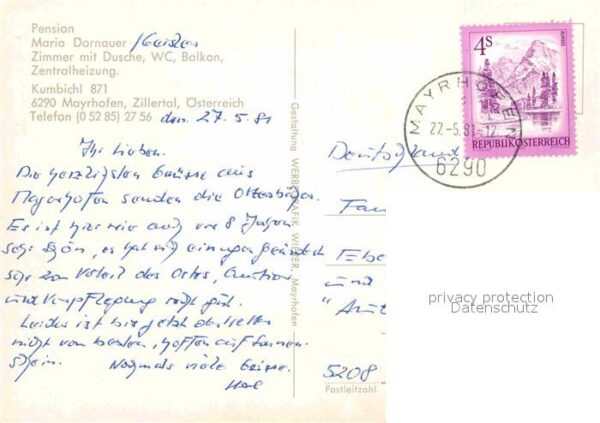 Pension
Maria Dornauer
Zimmer mit Dusche, WC, Balkon,
Zentralheizung.
Kumbichl 871
6290 Mayrhofen, Zillertal, Österreich
Telefon (0 52 85) 27 56 den 27.5.81
Ihr Lieben.
Die herzlichsten Grüsse aus
Mayerhofen senden die
Es ist hier wie auch vor 8 Jahren
sehr schön, es hat sich einiges geändert
sehr zum Vorteil des Ortes,
und Verpflegung recht gut.
Leider ist bis jetzt das Wetter
nicht vom besten, hoffen auf Sonnen-
schein. Nochmals viele Grüsse.
Gestaltung WERBEGRAFIK WIESER, Mayrhofen
4S
ALMSEE
REPUBLIK ÖSTERREICH
MAYRHOFEN
27.-5.81-12
6290
Deutschland
Fam
Ebe
und
"Aut
5208
Postleitzahl
privacy protection
Datenschutz